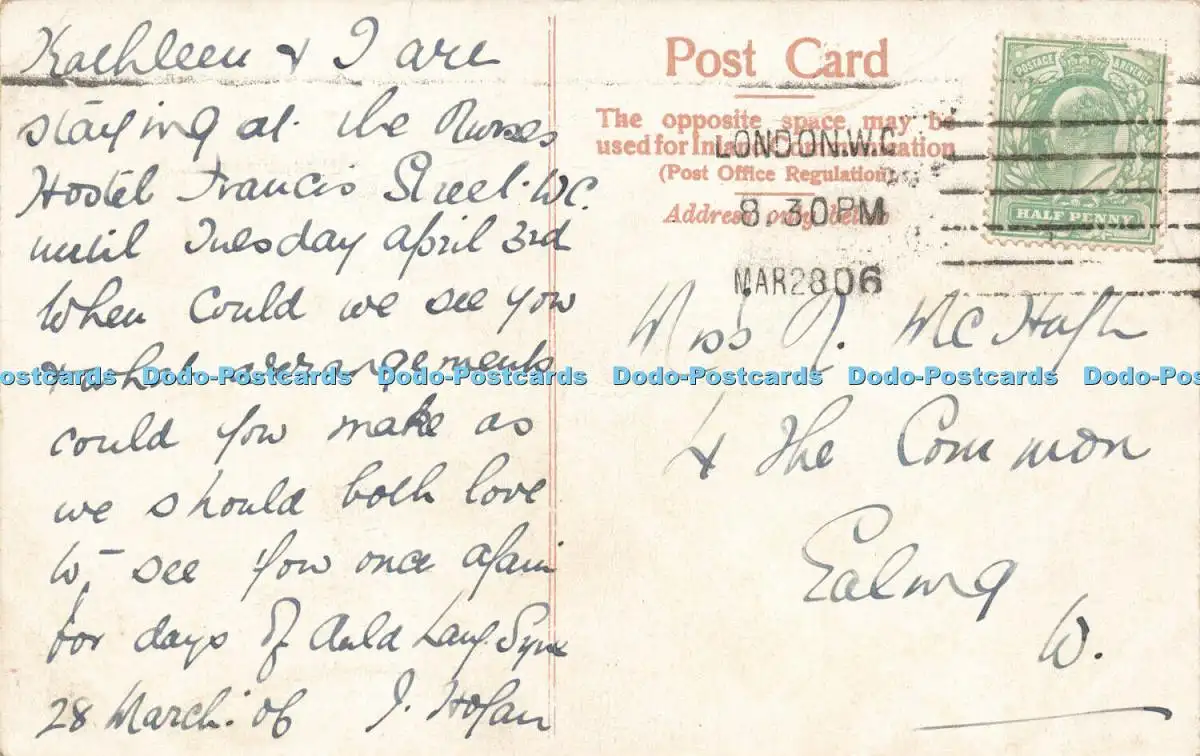 Kathleen & I are
staying at the Nurses
Hostel Francis Street. WC.
until Tuesday April 3rd
When could we see you
& what arrangements
could you make as
we should both love
to see you once again
for days of Auld Lang Syne
28 March. 06 J. Hogan
Post Card
The opposite space may be
used for Inland Communication
(Post Office Regulation)
Address only below
LONDON.W.C
8.30PM
MAR 28 06
POSTAGE REVENUE
HALF PENNY
Miss N. McHugh
4 The Common
Ealing
W.
Dodo-Postcards Dodo-Postcards Dodo-Postcards Dodo-Postcards Dodo-Postcards